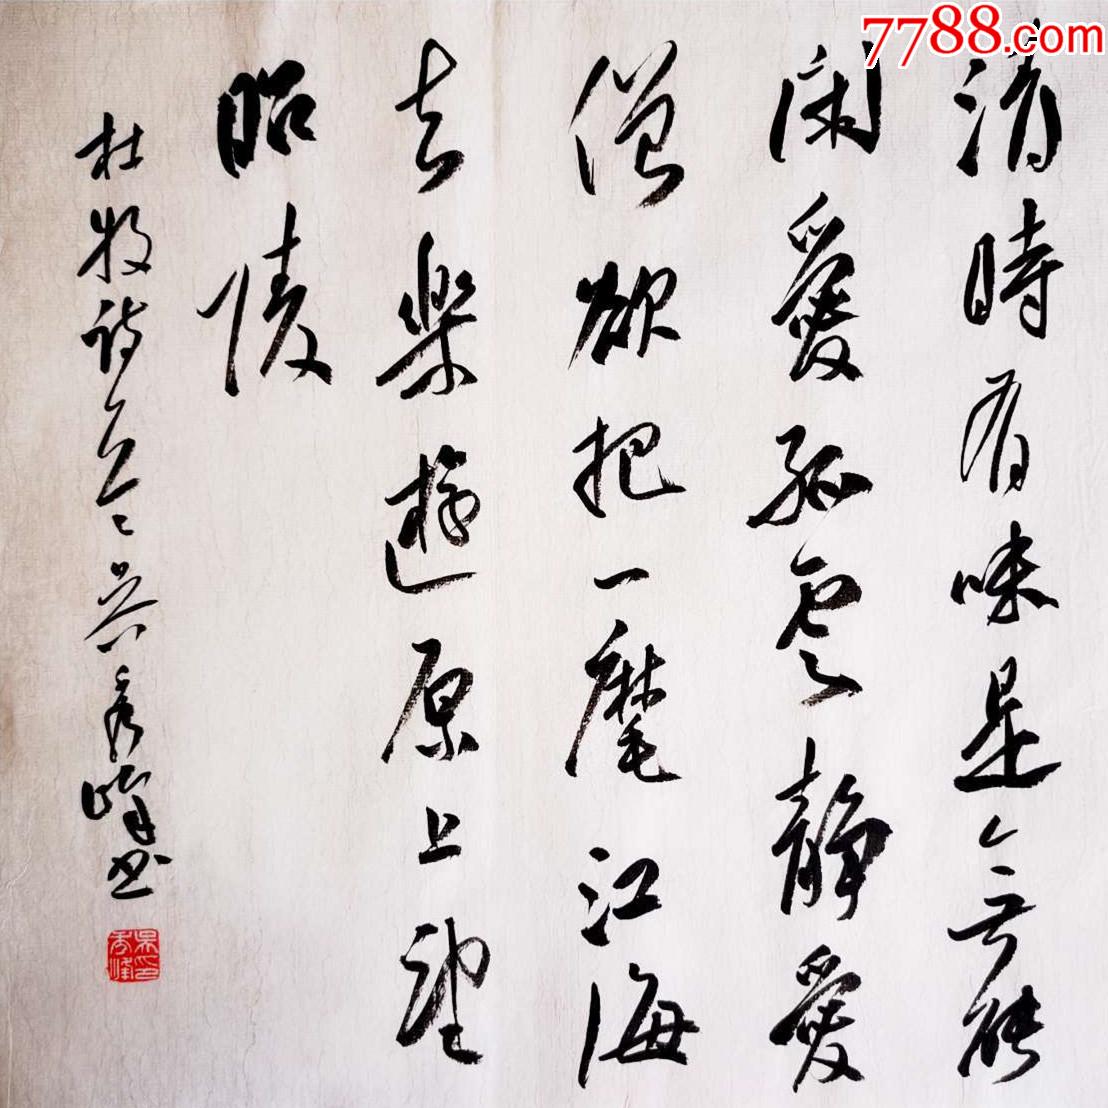 7788.com
清時有味是無能
閑愛孤雲靜愛
僧欲把一麾江海
去樂遊原上望
昭陵
杜牧詩 吳秀峰書
吳秀峰印